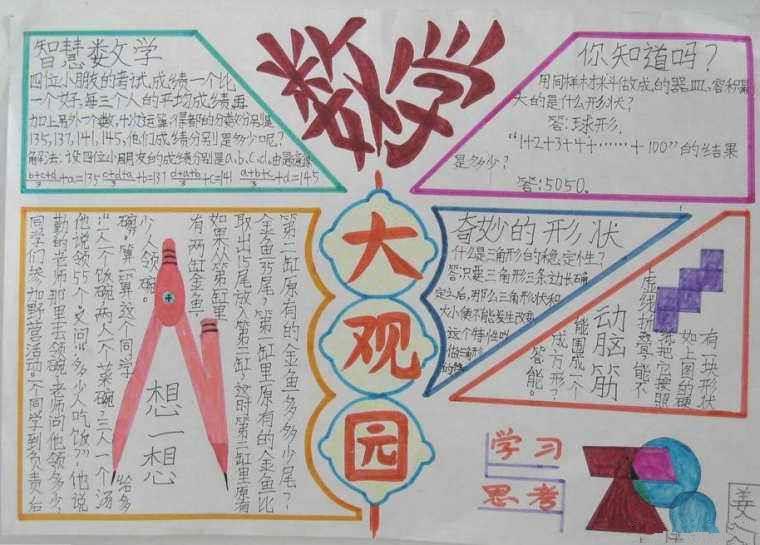 数学
大
观
园
智慧数学
四位小朋友的考试,成绩一个比
一个好,每三个人的平均成绩,再
加上另外一个数,
135,137,141,145,他们成绩分别是多少呢?
解法:设四位小朋友的成绩分别是a、b、c、d,由题意得
b+c+d/3+a=135 c+d+a/3+b=137 d+a+b/3+c=141 a+b+c/3+d=145
你知道吗?
用同样材料做成的器皿,容积最
大的是什么形状?
答:球形.
“1+2+3+4+……+100”的结果
是多少?
答:5050.
同学们去参加野营活动。一个同学到负责后
勤的老师那里去领碗,老师问他领多少,
他说领55个,又问“多少人吃饭?”他说
“一人一个饭碗,两人一个菜碗,三人一个汤
碗。”算一算这个同学给多
少人领碗。
想一想
有两缸金鱼,
如果从第一缸里
取出15尾放入第二缸,这时第二缸里原有
金鱼35尾?第一缸里原有的金鱼比
第二缸原有的金鱼多多少尾?
奇妙的形状
什么是三角形的稳定性?
答:只要三角形三条边长确
定之后,那么三角形状和
大小便不能发生改变,
这个特性
动脑筋
有一块形状
如上图的硬
把它按照
虚线折叠,能不
能围成一个
方形?
答:能。
学习
思考
姜